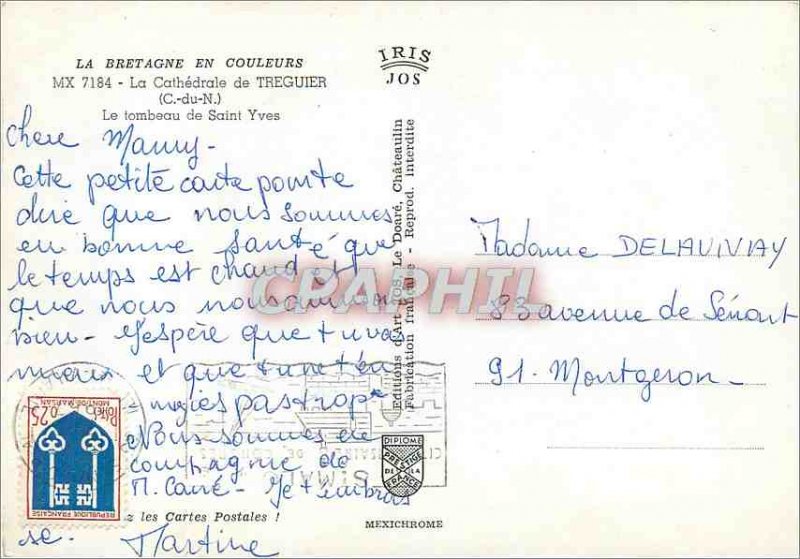 LA BRETAGNE EN COULEURS
MX 7184 - La Cathédrale de TREGUIER
(C.-du-N.)
Le tombeau de Saint Yves
Chere Mamy-
Cette petite carte pour te
dire que nous sommes
en bonne santé que
le temps est chaud et
que nous nous amusons
bien - J'espère que tu va
mieux et que tu ne t'en
- nuies pas trop-
Nous sommes en
compagnie de
M. Carré - Je t'embras
se. Martine
z les Cartes Postales !
POSTES
0,25
MONT-DE-MARSAN
REPUBLIQUE FRANÇAISE
ST MALO
IRIS
JOS
Editions d'Art "JOS" Le Doaré, Châteaulin
Fabrication française - Reprod. interdite
DIPLOME
PRESTIGE
DE LA
FRANCE
MEXICHROME
CPAPHIL
Madame DELAUNAY
83 avenue de Sénart
91. Montgeron-